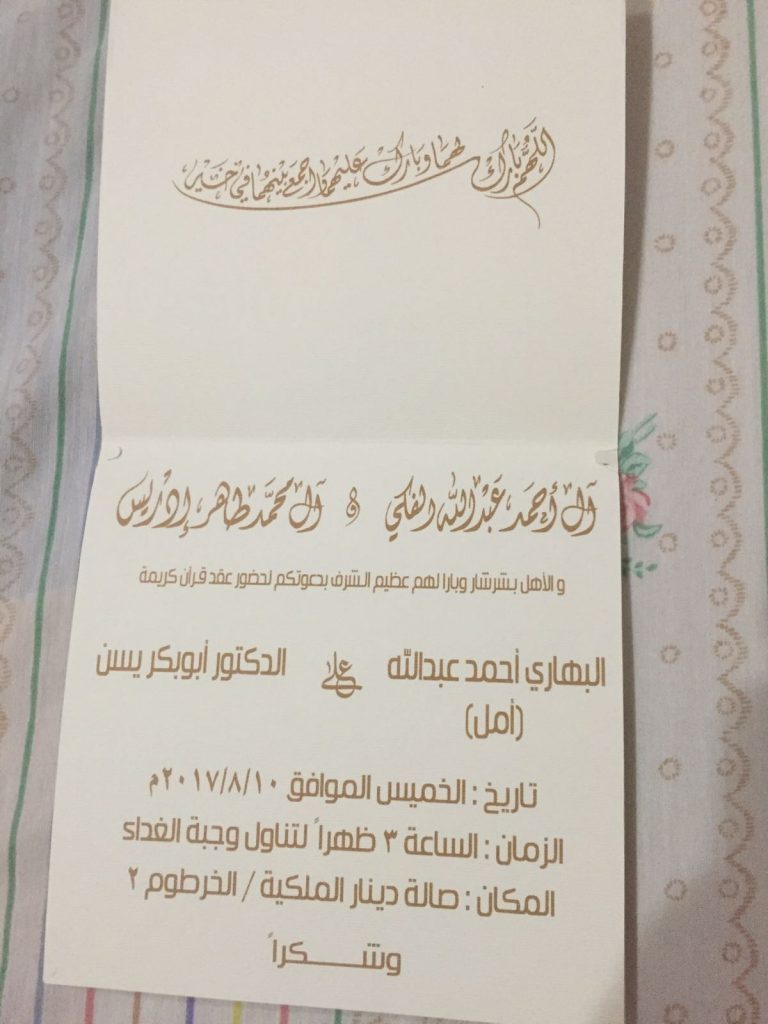 اللَّهُمَّ بَارِكْ لهما وبَارِكْ عَليْهما واجْمَعْ بَيْنهُما في خَيْر
آل أحمد عبدالله الفكي & آل محمَّد طاهر إدْريس
و الأهل بشرشار وبارا لهم عظيم الشرف بدعوتكم لحضور عقد قرآن كريمة
البهاري أحمد عبدالله على الدكتور أبوبكر يسن
(أمل)
تاريخ : الخميس الموافق ٢٠١٧/٨/١٠م
الزمان : الساعة ٣ ظهراً لتناول وجبة الغداء
المكان : صالة دينار الملكية / الخرطوم ٢
وشـــــكراً